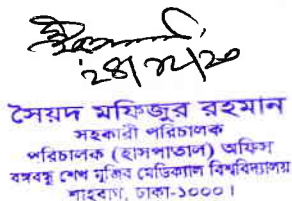 ২৪/১২/২০
সৈয়দ মফিজুর রহমান
সহকারী পরিচালক
পরিচালক (হাসপাতাল) অফিস
বঙ্গবন্ধু শেখ মুজিব মেডিক্যাল বিশ্ববিদ্যালয়
শাহবাগ, ঢাকা-১০০০।